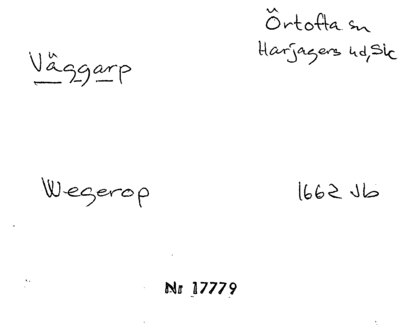 Örtofta sn
Väggarp
Harjagers hd, Sk
Wegerop 1662 Jb
Nr 17779